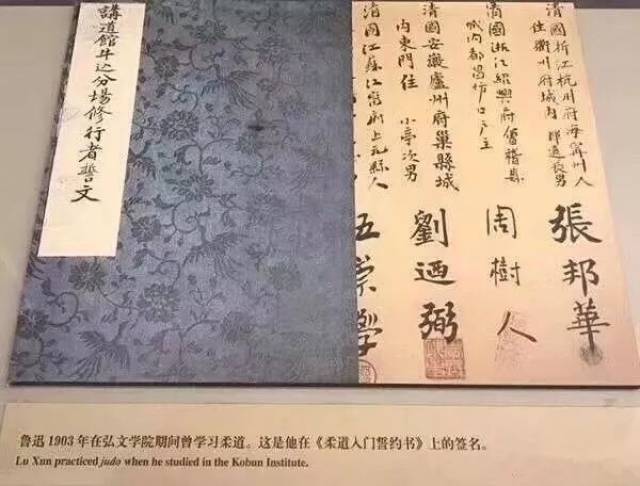 講道館牛込分場修行者誓文
清國浙江杭州府海甯州人
住衢州府城内 邦通長男
張邦華
清國浙江紹興府會稽縣
城内都昌坊口戸主
周樹人
清國安徽廬州府巢縣城
内東門住 小亭次男
劉迺弼
清國江蘇江寧府上元縣人
伍崇学
鲁迅1903年在弘文学院期间曾学习柔道。这是他在《柔道入门誓约书》上的签名。
Lu Xun practiced judo when he studied in the Kobun Institute.